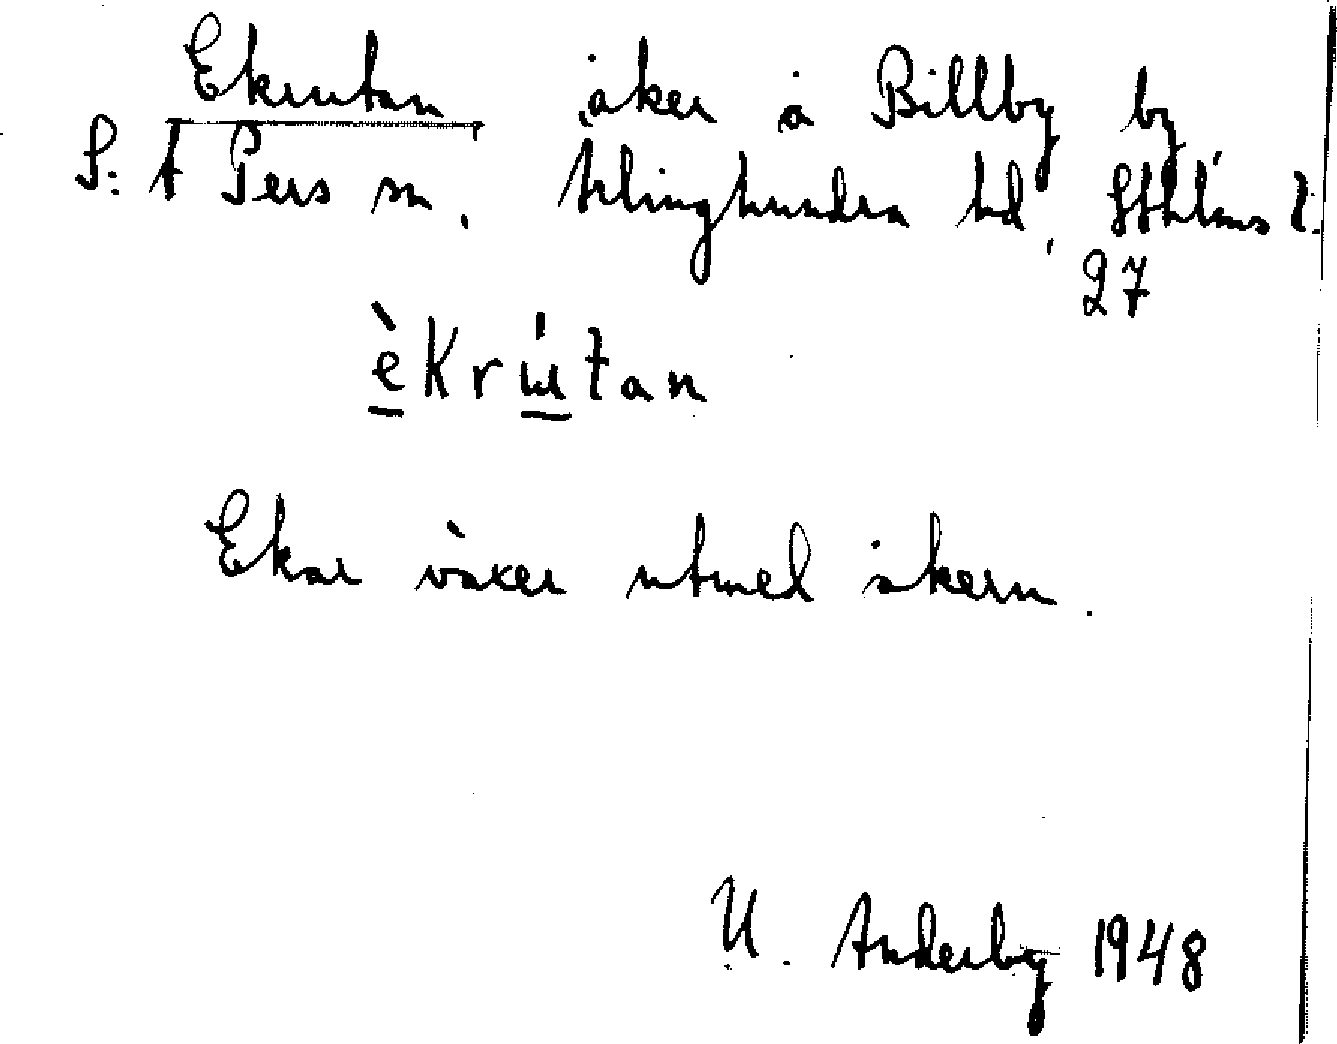 Ekrutan åker å Billby by
S:t Pers sn. Ärlinghundra hd, Sthlms l.
27
èkrútan
Ekar växer utmed åkern.
U. Anderby 1948